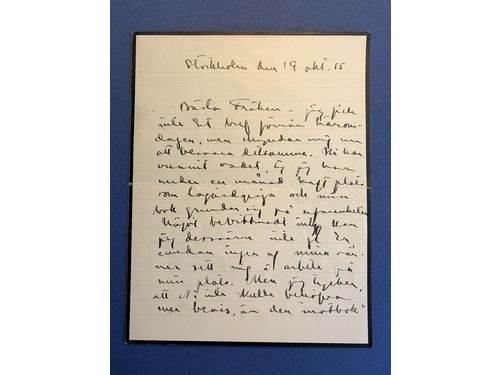 Stockholm den 19 okt. 15
Bästa Fröken – jag fick
inte Ert bref förrän härom-
dagen, men skyndar mig nu
att besvara detsamma. Ni har
vunnit vadet, ty jag har
sedan en månad haft plats
som och min
bok grundar sig på erfarenheten
Något inty kan
jag dessvärre inte ge Er
emedan ingen af mina vän-
ner sett mig i arbete på
min plats. Men jag tycker,
att Ni inte skulle behöfva
mer bevis, än den "motbok"